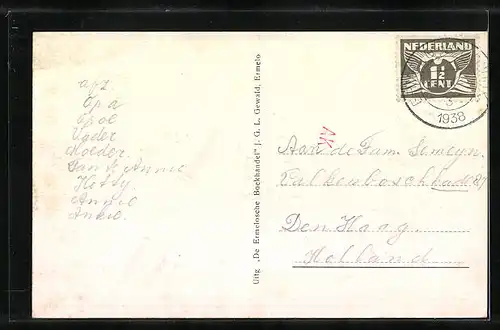 afz
Opa
Opoe
Vader
Moeder
Tante Annie
Hetty
Annie
Uitg. „De Ermelosche Boekhandel" J. G. L. Gewald, Ermelo
NEDERLAND
1½
CENT
3
1938
AK
Aan de Fam. Semeyn.
Valkenboschkade 87
Den Haag
Holland